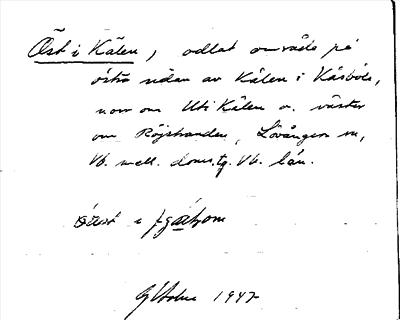 Öst i Kälen, odlat område på
östra sidan av Kälen i Kåsböle,
norr om Uti Kälen o. väster
om Röjstranden, Lövångers sn,
Vb. mell. doms.tg. Vb. län.
1947